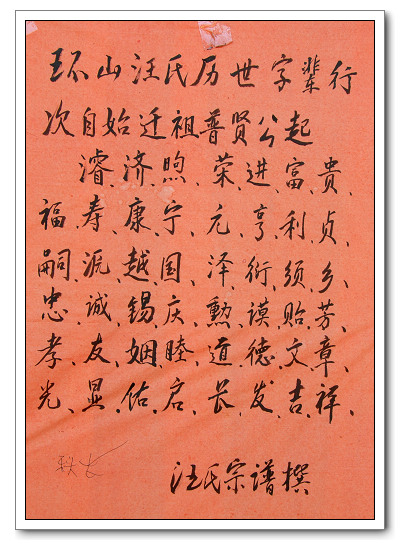 环山汪氏历世字辈行
次自始迁祖普贤公起
濬、济、煦、荣、进、富、贵、
福、寿、康、宁、元、亨、利、贞、
嗣、派、越、国、泽、衍、须、乡、
忠、诚、锡、庆、勲、谟、贻、芳、
孝、友、姻、睦、道、德、文、章、
光、显、佑、启、长、发、吉、祥、
汪氏宗谱撰